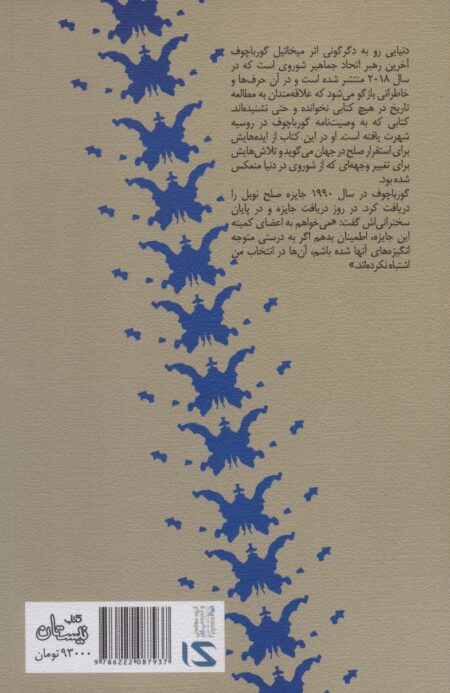 دنیایی رو به دگرگونی اثر میخائیل گورباچوف
آخرین رهبر اتحاد جماهیر شوروی است که در
سال ۲۰۱۸ منتشر شده است و در آن حرف‌ها و
خاطراتی بازگو می‌شود که علاقه‌مندان به مطالعه
تاریخ در هیچ کتابی نخوانده و حتی نشنیده‌اند.
کتابی که به وصیت‌نامه گورباچوف در روسیه
شهرت یافته است. او در این کتاب از ایده‌هایش
برای استقرار صلح در جهان می‌گوید و تلاش‌هایش
برای تغییر وجهه‌ای که از شوروی در دنیا منعکس
شده بود.
گورباچوف در سال ۱۹۹۰ جایزه صلح نوبل را
دریافت کرد. در روز دریافت جایزه و در پایان
سخنرانی‌اش گفت: «می‌خواهم به اعضای کمیته
این جایزه، اطمینان بدهم اگر به درستی متوجه
انگیزه‌های آنها شده باشم، آن‌ها در انتخاب من
اشتباه نکرده‌اند.»
کتاب
نیستان
۹۳۰۰۰ تومان
9 786222 087937